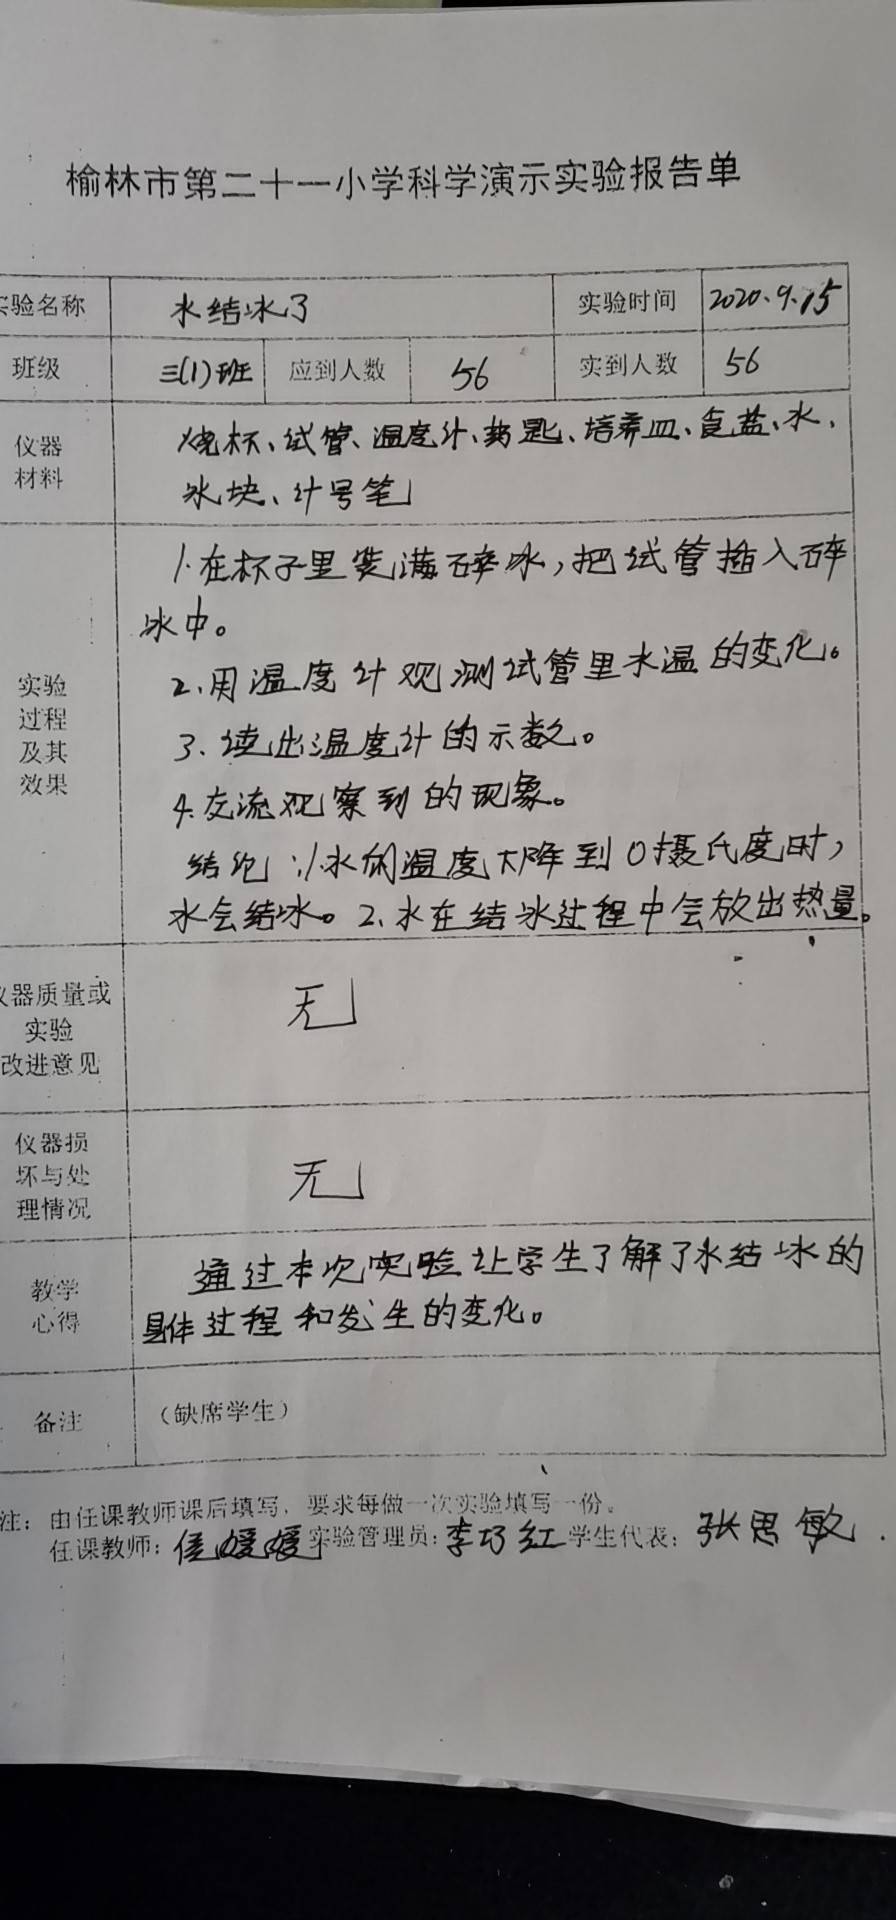 榆林市第二十一小学科学演示实验报告单
实验名称 水结冰了 实验时间 2020.9.15
班级 三(1)班 应到人数 56 实到人数 56
仪器
材料
烧杯、试管、温度计、药匙、培养皿、食盐、水、
冰块、计号笔
实验
过程
及其
效果
1.在杯子里装满碎冰,把试管插入碎
冰中。
2.用温度计观测试管里水温的变化。
3.读出温度计的示数。
4.交流观察到的现象。
结论:1.水的温度下降到0摄氏度时,
水会结冰。2.水在结冰过程中会放出热量。
仪器质量或
实验
改进意见
无
仪器损
坏与处
理情况
无
教学
心得
通过本次实验让学生了解了水结冰的
具体过程和发生的变化。
备注 (缺席学生)
注: 由任课教师课后填写,要求每做一次实验填写一份。
任课教师:侯媛媛 实验管理员:李巧红 学生代表:张思敏